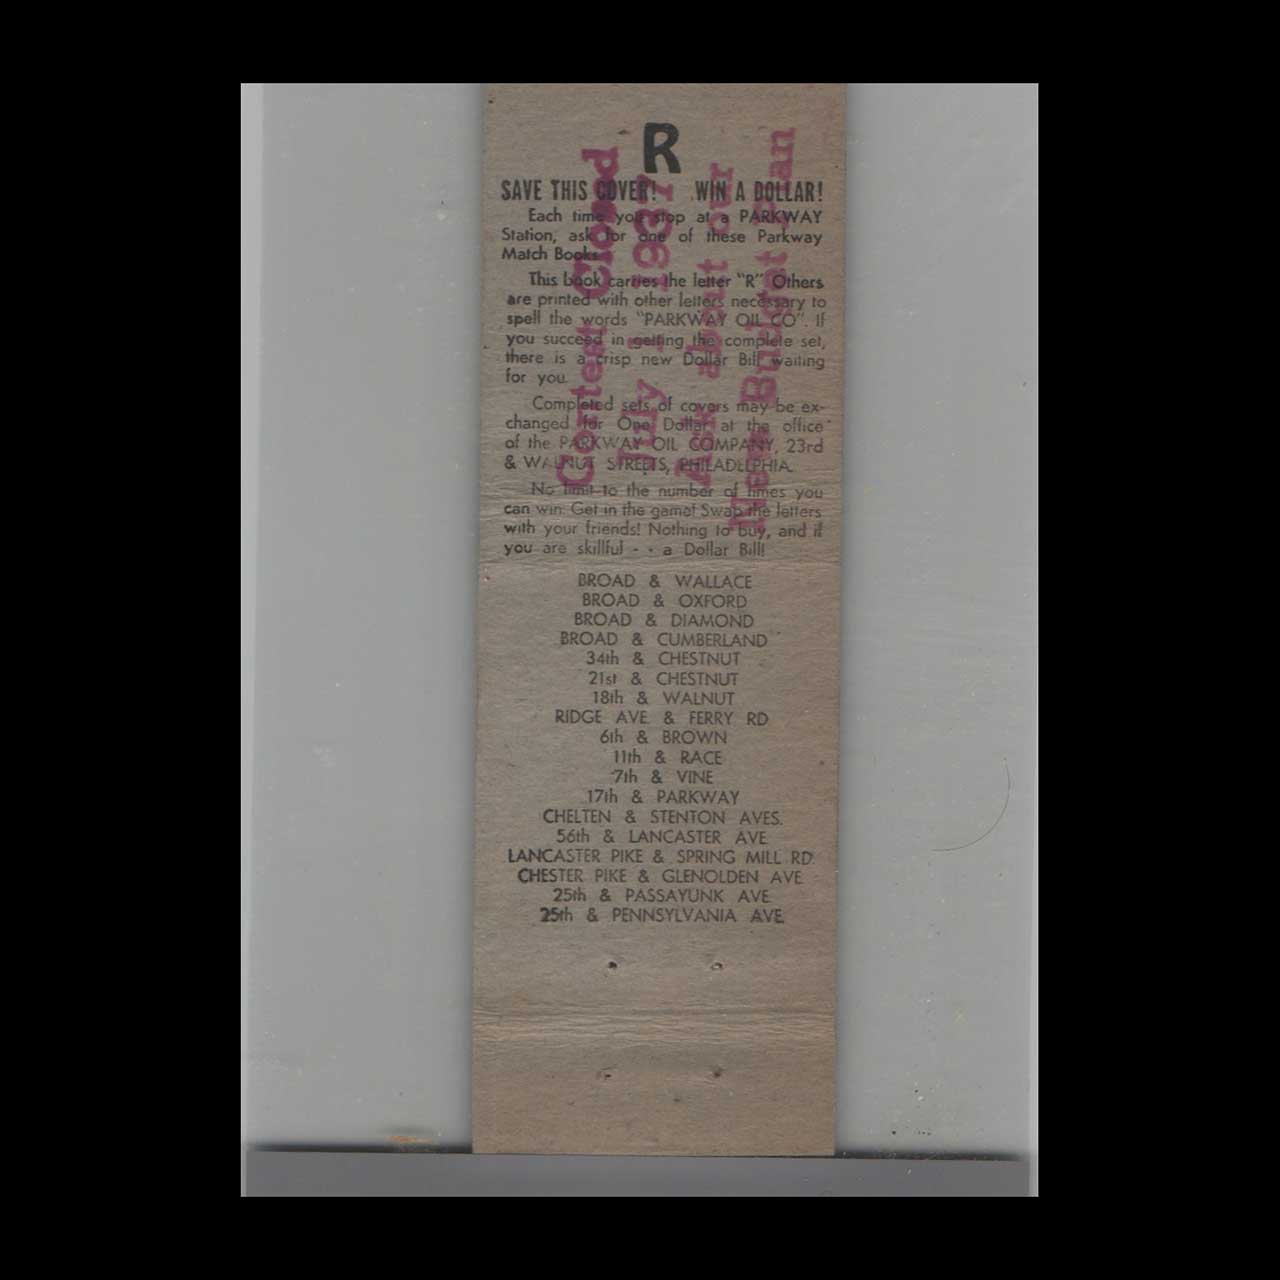 R
SAVE THIS COVER! WIN A DOLLAR!
Each time you stop at a PARKWAY
Station, ask for one of these Parkway
Match Books.
This book carries the letter "R" Others
are printed with other letters necessary to
spell the words "PARKWAY OIL CO". If
you succeed in getting the complete set,
there is a crisp new Dollar Bill waiting
for you.
Completed sets of covers may be ex-
changed for One Dollar at the office
of the PARKWAY OIL COMPANY, 23rd
& WALNUT STREETS, PHILADELPHIA.
No limit to the number of times you
can win. Get in the game! Swap the letters
with your friends! Nothing to buy, and if
you are skillful - - a Dollar Bill!
BROAD & WALLACE
BROAD & OXFORD
BROAD & DIAMOND
BROAD & CUMBERLAND
34th & CHESTNUT
21st & CHESTNUT
18th & WALNUT
RIDGE AVE. & FERRY RD.
6th & BROWN
11th & RACE
7th & VINE
17th & PARKWAY
CHELTEN & STENTON AVES.
56th & LANCASTER AVE.
LANCASTER PIKE & SPRING MILL RD.
CHESTER PIKE & GLENOLDEN AVE.
25th & PASSAYUNK AVE.
25th & PENNSYLVANIA AVE.
Contest Closed
July 1 1937
Ask about our
New Budget Plan